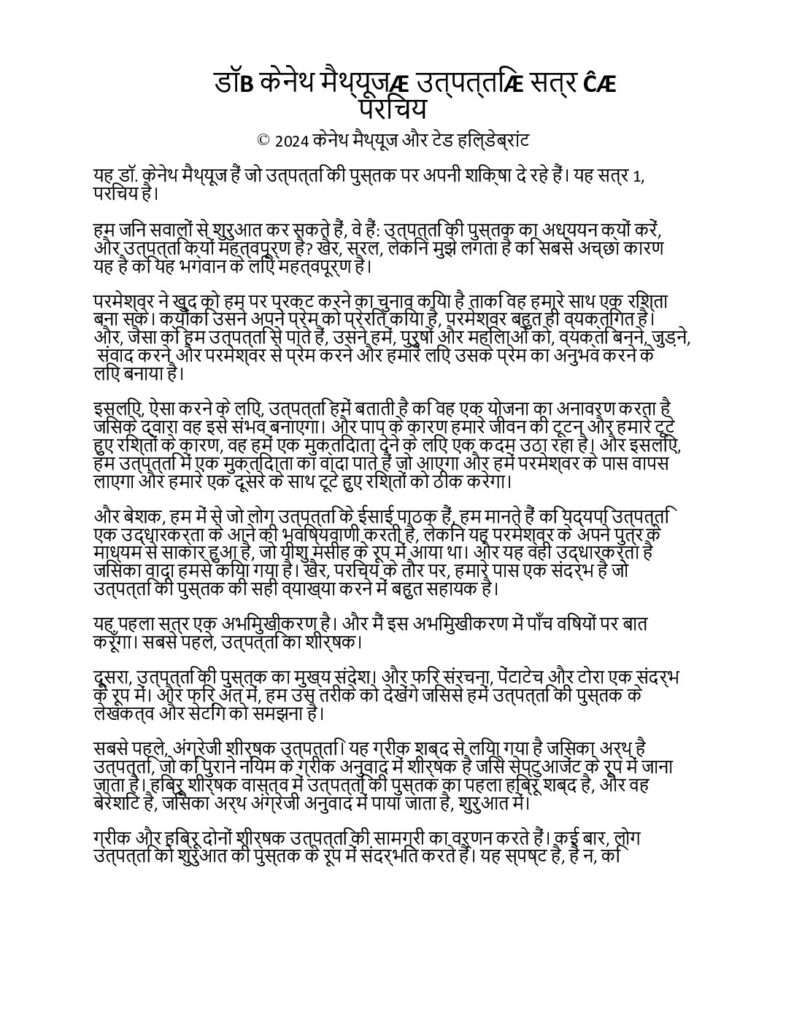 डॉB केनेथ मैथ्यूजÆ उत्पत्तिÆ सत्र ĈÆ
परिचय
© 2024 केनेथ मैथ्यूज और टेड हिल्डेब्रांट
यह डॉ. केनेथ मैथ्यूज हैं जो उत्पत्ति की पुस्तक पर अपनी शिक्षा दे रहे हैं। यह सत्र 1,
परिचय है।
हम जिन सवालों से शुरुआत कर सकते हैं, वे हैं: उत्पत्ति की पुस्तक का अध्ययन क्यों करें,
और उत्पत्ति क्यों महत्वपूर्ण है? खैर, सरल, लेकिन मुझे लगता है कि सबसे अच्छा कारण
यह है कि यह भगवान के लिए महत्वपूर्ण है।
परमेश्वर ने खुद को हम पर प्रकट करने का चुनाव किया है ताकि वह हमारे साथ एक रिश्ता
बना सके। क्योंकि उसने अपने प्रेम को प्रेरित किया है, परमेश्वर बहुत ही व्यक्तिगत है।
और, जैसा कि हम उत्पत्ति से पाते हैं, उसने हमें, पुरुषों और महिलाओं को, व्यक्ति बनने, जुड़ने,
संवाद करने और परमेश्वर से प्रेम करने और हमारे लिए उसके प्रेम का अनुभव करने के
लिए बनाया है।
इसलिए, ऐसा करने के लिए, उत्पत्ति हमें बताती है कि वह एक योजना का अनावरण करता है
जिसके द्वारा वह इसे संभव बनाएगा। और पाप के कारण हमारे जीवन की टूटन और हमारे टूटे
हुए रिश्तों के कारण, वह हमें एक मुक्तिदाता देने के लिए एक कदम उठा रहा है। और इसलिए,
हम उत्पत्ति में एक मुक्तिदाता का वादा पाते हैं जो आएगा और हमें परमेश्वर के पास वापस
लाएगा और हमारे एक दूसरे के साथ टूटे हुए रिश्तों को ठीक करेगा।
और बेशक, हम में से जो लोग उत्पत्ति के ईसाई पाठक हैं, हम मानते हैं कि यद्यपि उत्पत्ति
एक उद्धारकर्ता के आने की भविष्यवाणी करती है, लेकिन यह परमेश्वर के अपने पुत्र के
माध्यम से साकार हुआ है, जो यीशु मसीह के रूप में आया था। और यह वही उद्धारकर्ता है
जिसका वादा हमसे किया गया है। खैर, परिचय के तौर पर, हमारे पास एक संदर्भ है जो
उत्पत्ति की पुस्तक की सही व्याख्या करने में बहुत सहायक है।
यह पहला सत्र एक अभिमुखीकरण है। और मैं इस अभिमुखीकरण में पाँच विषयों पर बात
करूँगा। सबसे पहले, उत्पत्ति का शीर्षक।
दूसरा, उत्पत्ति की पुस्तक का मुख्य संदेश। और फिर संरचना, पेंटाटेच और टोरा एक संदर्भ
के रूप में। और फिर अंत में, हम उस तरीके को देखेंगे जिससे हमें उत्पत्ति की पुस्तक के
लेखकत्व और सेटिंग को समझना है।
सबसे पहले, अंग्रेजी शीर्षक उत्पत्ति। यह ग्रीक शब्द से लिया गया है जिसका अर्थ है
उत्पत्ति, जो कि पुराने नियम के ग्रीक अनुवाद में शीर्षक है जिसे सेप्टुआजेंट के रूप में जाना
जाता है। हिब्रू शीर्षक वास्तव में उत्पत्ति की पुस्तक का पहला हिब्रू शब्द है, और वह
बेरेशिट है, जिसका अर्थ अंग्रेजी अनुवाद में पाया जाता है, शुरुआत में।
ग्रीक और हिब्रू दोनों शीर्षक उत्पत्ति की सामग्री का वर्णन करते हैं। कई बार, लोग
उत्पत्ति को शुरुआत की पुस्तक के रूप में संदर्भित करते हैं। यह स्पष्ट है, है न, कि